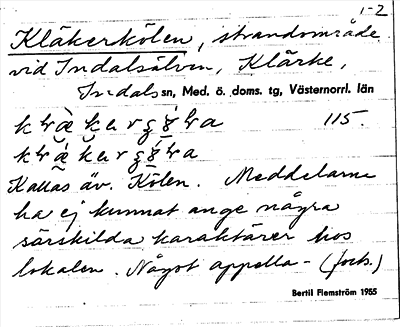 1-2
Kläkerkölen, strandområde
vid Indalsälven, Klärke,
Indals sn, Med. ö. doms. tg, Västernorrl. län
115.
Kallas äv. Kölen. Meddelarna
ha ej kunnat ange några
särskilda karaktärer hos
lokalen. Något appella- (forts.)
Bertil Flemström 1955